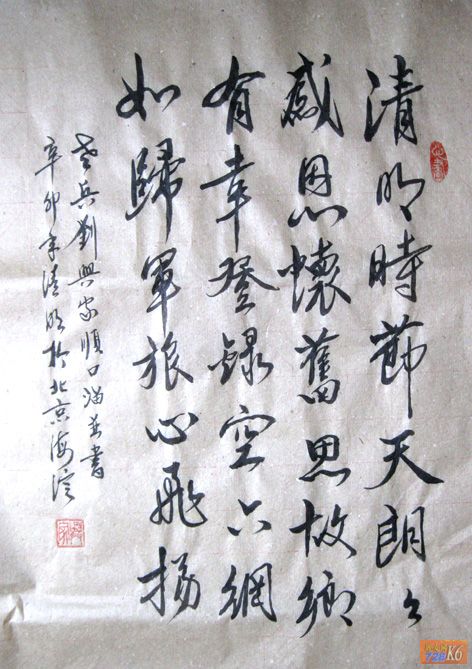 清明時節天朗々
感恩懷舊思故鄉
有幸登錄空六網
如歸軍旅心飛揚
老兵劉興家順口溜並書
辛卯年清明於北京海淀
K6